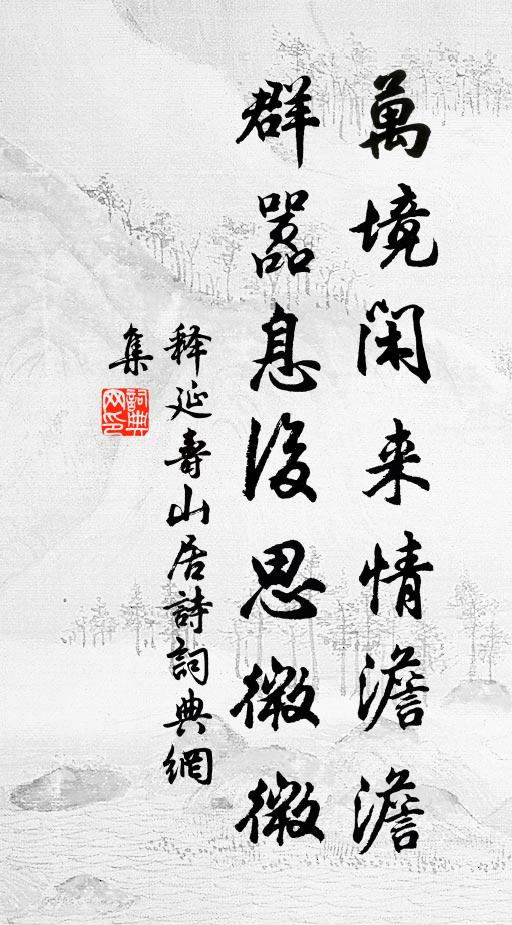 萬境閑来情澹澹
群嚣息後思微微
释延壽山居詩詞典網
集
詞典
网印